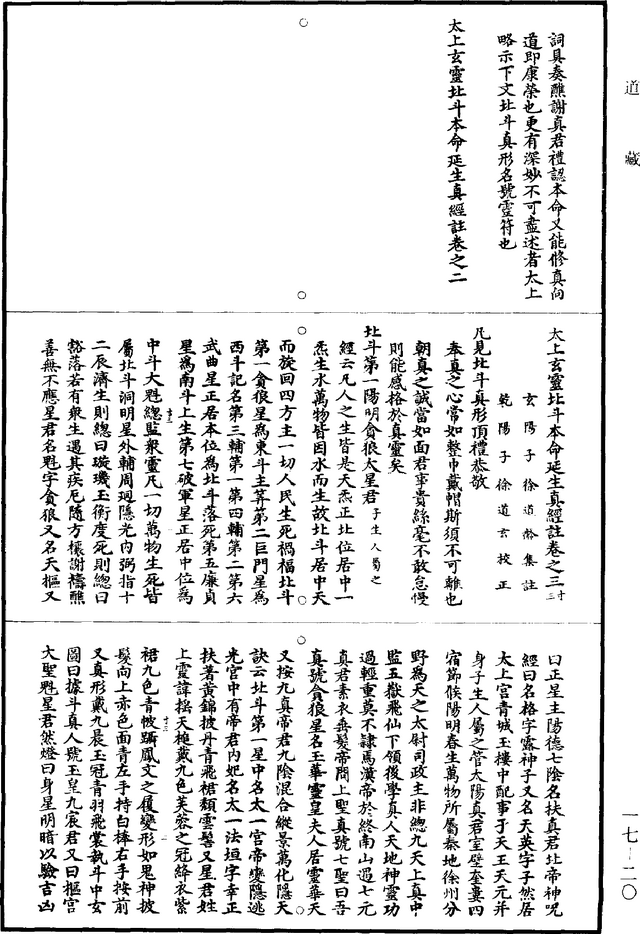 道藏
詞具奏醮謝真君禮認本命又能修真向
道即康榮也更有深妙不可盡述者太上
略示下文北斗真形名號靈符也
太上玄靈北斗本命延生真經註卷之二
太上玄靈北斗本命延生真經註卷之三 寸三
玄陽子徐道齡集註
乾陽子徐道玄校正
凡見北斗真形頂禮恭敬
奉真之心常如整巾戴帽斯須不可離也
朝真之誠當如面君事貴絲毫不敢怠慢
則能感格於真靈矣
北斗第一陽明貪狼太星君 子生人屬之
經云凡人之生皆是天炁正北位居中一
炁生水萬物皆因水而生故北斗居中天
而旋回四方主一切人民生死禍福北斗
第一貪狼星為東斗主筭第二巨門星為
西斗記名第三輔第一第四輔第二第六
武曲星正居本位為北斗落死第五廉貞
星為南斗上生第七破軍星正居中位為
中斗大魁總監衆靈凡一切萬物生死皆
屬北斗洞明星外輔周廻隱光內弼指十
二辰濟生則總曰璇璣玉衡度死則總曰
豁落若有衆生遇其疾厄隨方禳謝禱醮
善無不應星君名魁字貪狼又名天樞又
曰正星主陽德七陰名扶真君北帝神呪
經曰名格字露神子又名天英字子然居
太上宮青城玉樓中配事子天王天元并
身子生人屬之管太陽真君室壁奎婁四
宿節候陽明春生萬物所屬秦地徐州分
野為天之太尉司政主非總九天上真中
監五嶽飛仙下領後學真人天地神靈功
過輕重莫不隸焉漢帝於終南山遇七元
真君素衣垂髮帝問上聖真號七聖曰吾
真號貪狼星名玉華靈皇夫人居靈華天
又按九真帝君九陰混合縱景萬化隱天
訣云北斗第一星中名太一宮帝變隱逃
光宮中有帝君內妃名太一法垣字幸正
扶著黃錦披丹青飛裙頹雲髻又星君姓
上靈諱搖天槌戴九色芙蓉之冠絳衣紫
裙九色青帔躡鳳文之履變形如鬼神披
髮向上赤色面青左手持白棒右手按前
又真形戴九晨玉冠青羽飛裳執斗中玄
圖曰據斗真人號玉皇九宸君又曰樞宮
大聖魁星君然燈曰身星明暗以驗吉凶
一七—二〇